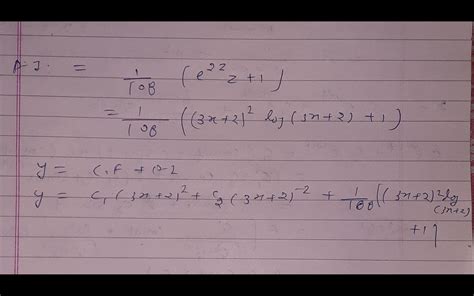 P.I. = 1/108 (e^{2z} z + 1)
= 1/108 ((3x+2)² log(3x+2) + 1)
y = C.F + P.I
y = C₁(3x+2)² + C₂(3x+2)⁻² + 1/108 [(3x+2)² log
(3x+2)
+1]